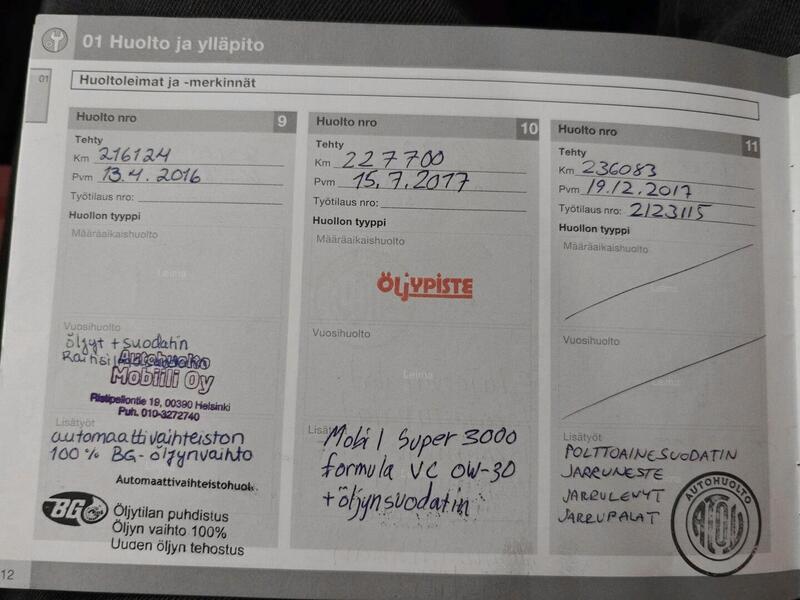 01 Huolto ja ylläpito
01
Huoltoleimat ja -merkinnät
Huolto nro 9
Tehty
Km 216124
Pvm 13.4.2016
Työtilaus nro:
Huollon tyyppi
Määräaikaishuolto
Leima
Vuosihuolto
öljyt + suodatin
Autohuolto
Mobiili Oy
Ristipellontie 19, 00390 Helsinki
Puh. 010-3272740
Lisätyöt
automaattivaihteiston
100 % BG-öljynvaihto
Automaattivaihteistohuol
BG
Öljytilan puhdistus
Öljyn vaihto 100%
Uuden öljyn tehostus
Huolto nro 10
Tehty
Km 227700
Pvm 15.7.2017
Työtilaus nro:
Huollon tyyppi
Määräaikaishuolto
ÖljYPISTE
Vuosihuolto
Leima
Lisät
Mobil Super 3000
formula VC 0W-30
+ öljynsuodatin
Huolto nro 11
Tehty
Km 236083
Pvm 19.12.2017
Työtilaus nro: 2123115
Huollon tyyppi
Määräaikaishuolto
Leima
Vuosihuolto
Leima
Lisätyöt
POLTTOAINESUODATIN
JARRUNESTE
JARRULEVYT
JARRUPALAT
AUTOHUOLTO
12